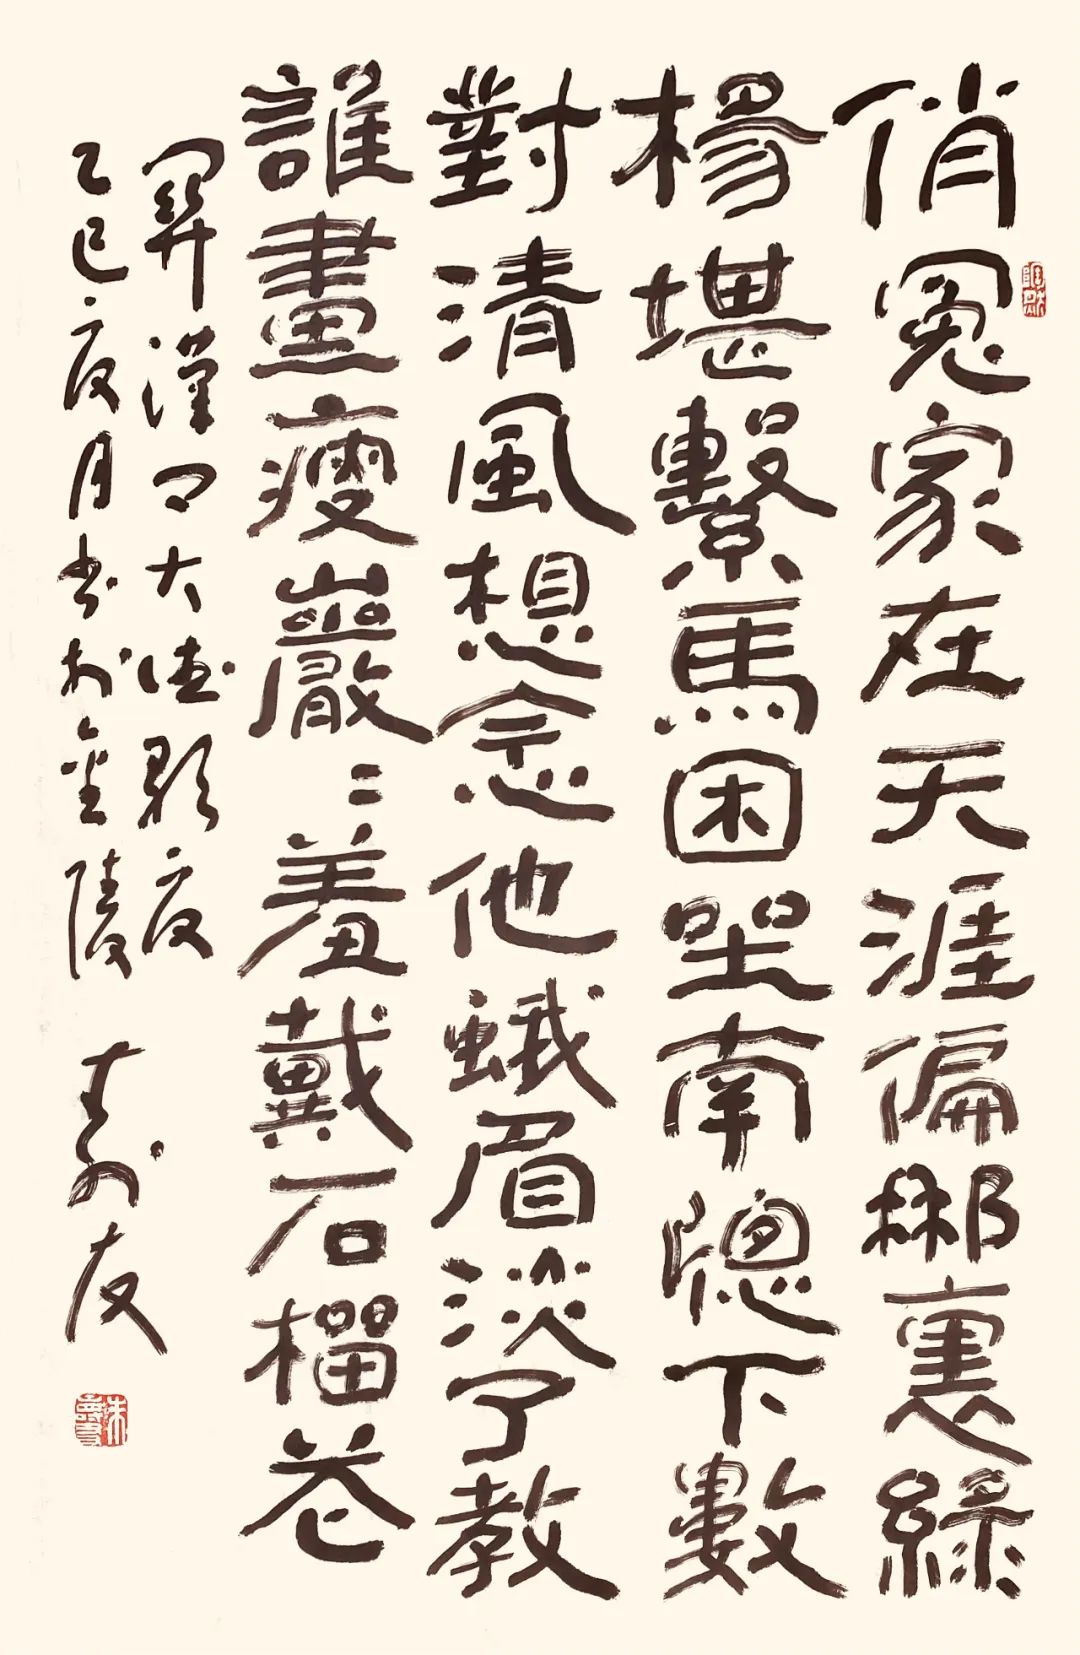 俏冤家在天涯偏郍裏綠
楊堪繫馬困坐南牕下數
對清風想念他蛾眉淡了教
誰畫瘦巖〻羞戴石榴花
關漢卿大德歌夏
乙巳夏月書於金陵 壽友
朱壽友